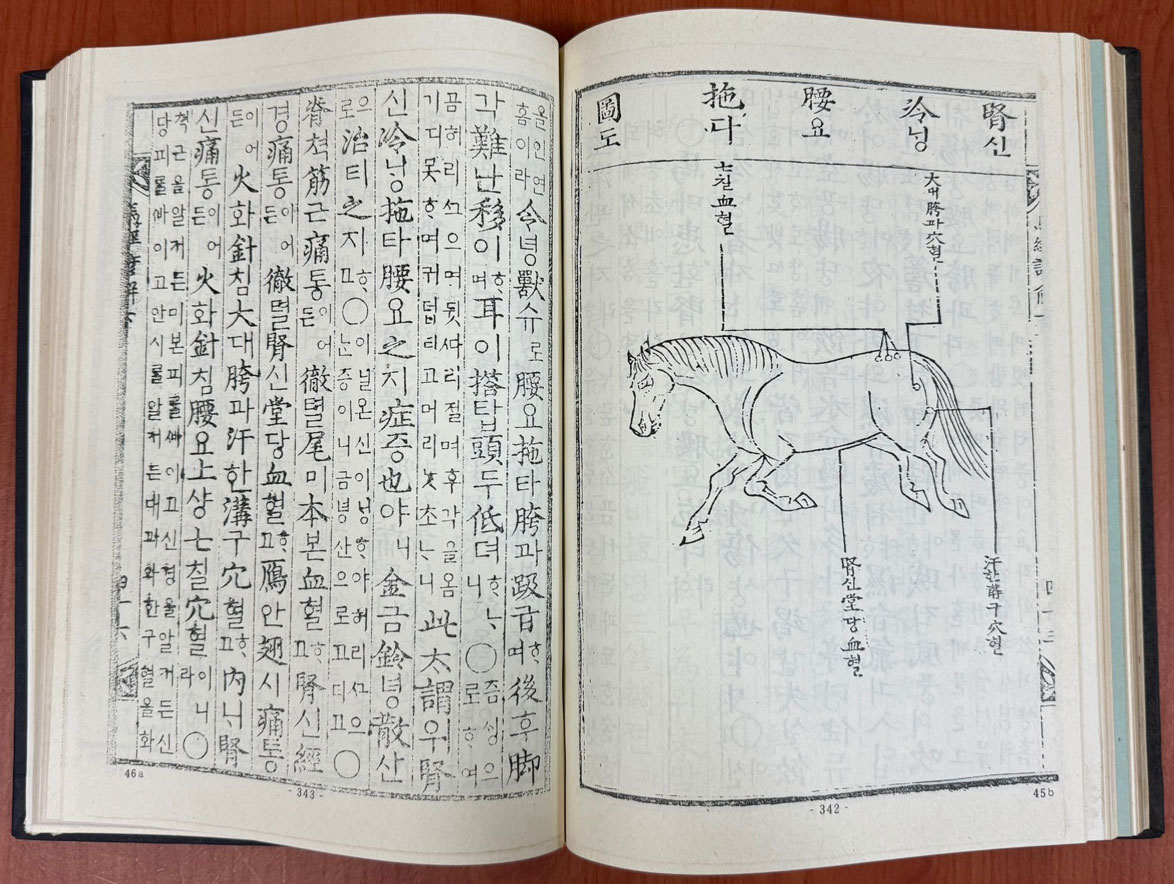 腎신冷닝腰요拖다圖도
大대胯과穴혈
七칠血혈
汗한溝구穴혈
腎신堂당血혈
45b
- 342 -
올인연홈이라令녕獸슈로腰요拖타胯과跋급ᄒᆞ며後후脚
각難난移이ᄒᆞ며耳이搭탑頭두低뎌ᄒᆞᄂᆞ니○즘ᄉᆡᆼ으로ᄒᆞ여
곰허리ᄭᅳ으며뒷ᄯᅡ리절며후각을옴기디못ᄒᆞ며귀덥티고머리ᄂᆞᆺ초ᄂᆞ니此太謂위腎
신冷닝拖타腰요之지症증也야ㅣ니金금鈴녕散산
으로治티之지ᄒᆞ고○이닐온신이닝ᄒᆞ야허리ᄭᅳ으ᄂᆞᆫ증이니금녕산으로고디고○
脊쳑筋근痛통이어든徹텰尾미本본血혈ᄒᆞ고腎신經
경痛통이어든徹텰腎신堂당血혈ᄒᆞ고鴈안翅시痛통
이어든火화針침大대胯과汗한溝구穴혈ᄒᆞ고內ᄂᆡ腎
신痛통이어든火화針침腰요上샹七칠穴혈이니라○
쳑근을알커든미본피ᄅᆞᆯᄲᅡ이고신경을알커든신당피ᄅᆞᆯᄲᅡ이고안시ᄅᆞᆯ알커든대과화한구혈을화
46a
- 343 -